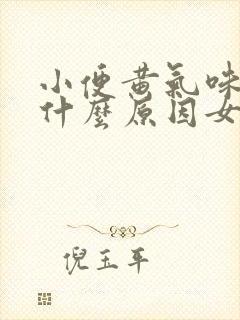 小便黄氣味
什麼原因女
倪玉平